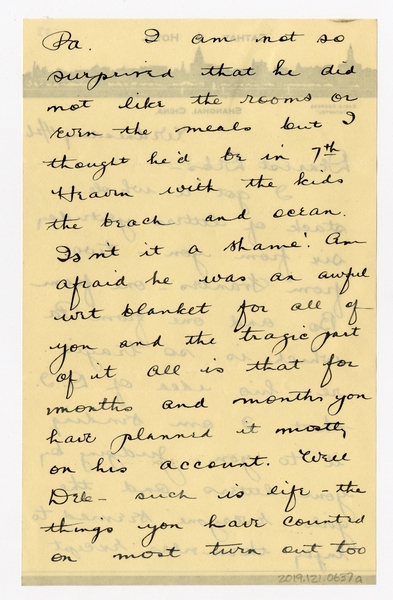 Pa. I am not so
surprised that he did
not like the rooms or
even the meals but I
thought he'd be in 7th
Heaven with the kids
the beach and ocean.
Isn't it a shame! Am
afraid he was an awful
wet blanket for all of
you and the tragic part
of it all is that for
months and months you
have planned it mostly
on his account. Well
Deb - such is life - the
things you have counted
on most turn out too
2019.121.0637a